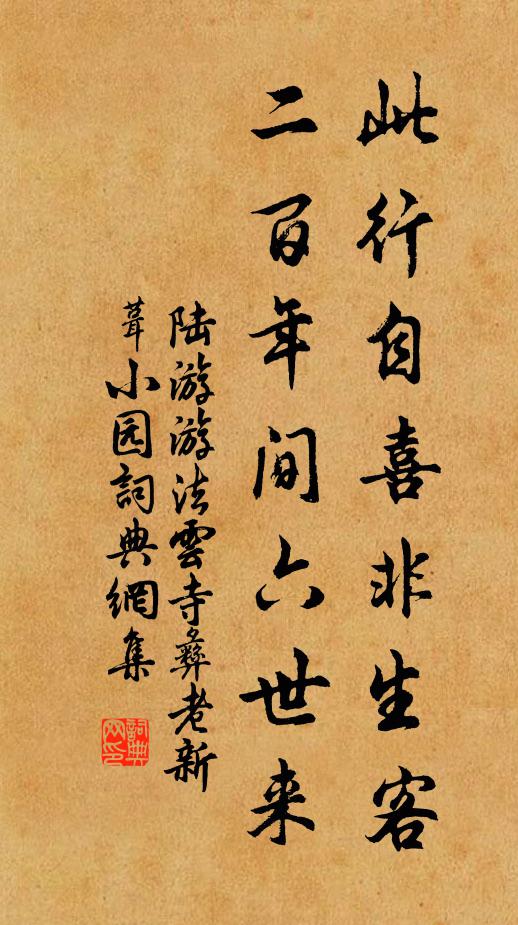 此行自喜非生客
二百年间六世来
陆游游法雲寺彝老新
葺小园詞典網集
詞典网印